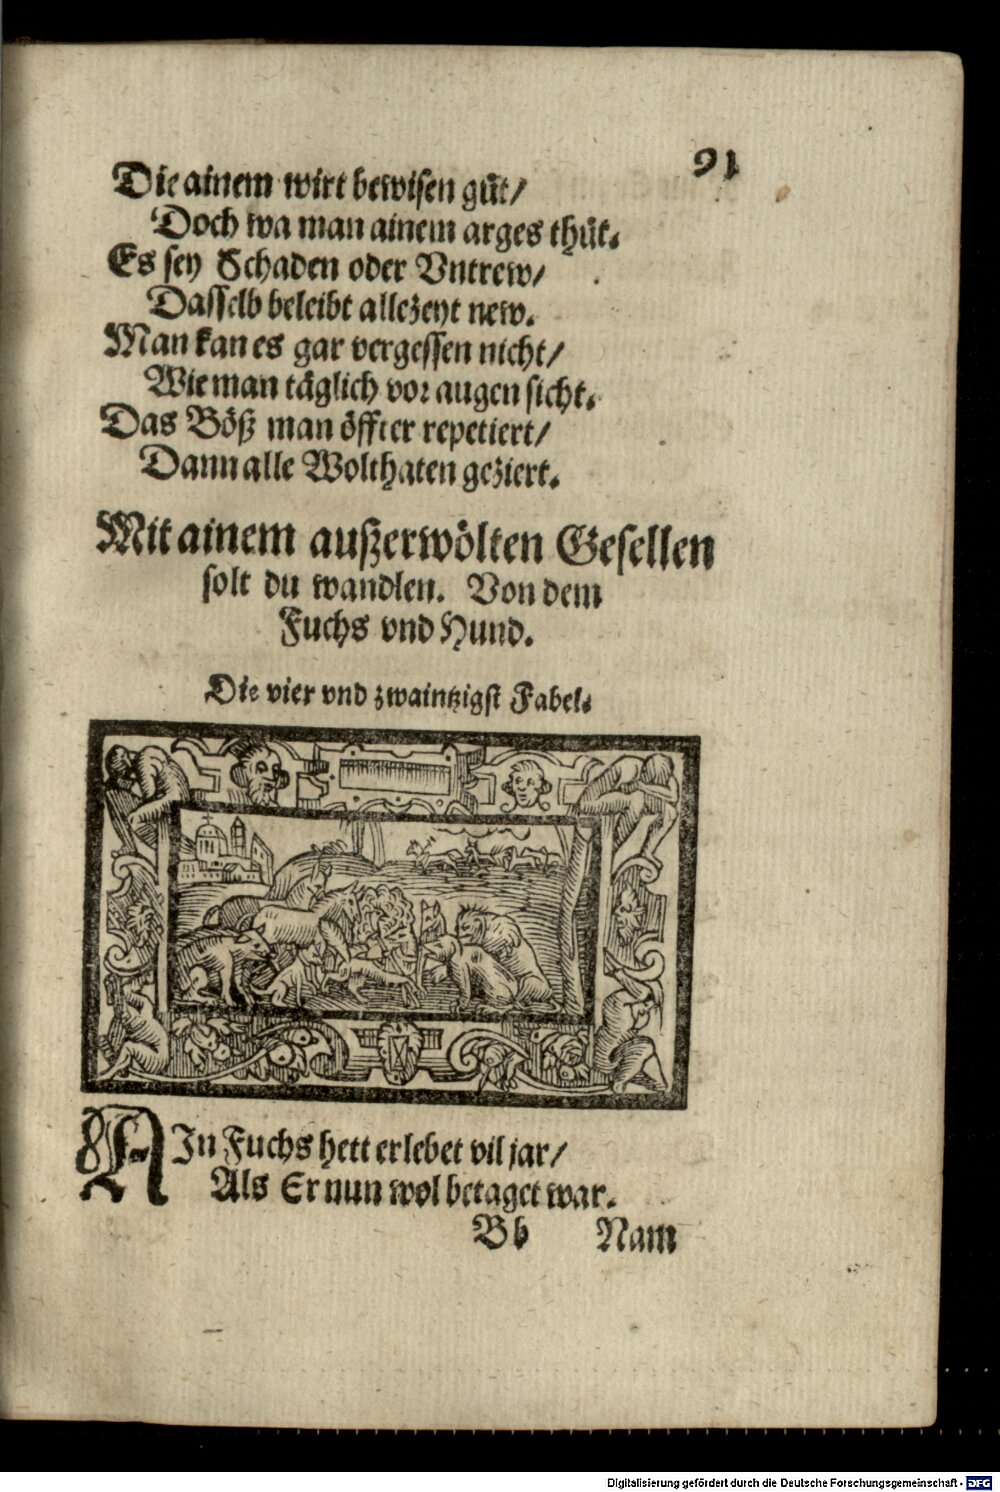 91
Die ainem wirt bewisen gůt/
Doch wa man ainem arges thůt.
Es sey Schaden oder Vntrew/
Dasselb beleibt allezeyt new.
Man kan es gar vergessen nicht/
Wie man täglich vor augen sicht.
Das Böß man öffter repetiert/
Dann alle Wolthaten geziert.
Mit ainem außerwölten Gesellen
solt du wandlen. Von dem
Fuchs vnd Hund.
Die vier vnd zwaintzigst Fabel.
AIn Fuchs hett erlebet vil jar/
Als Er nun wol betaget war.
Bb Nam
Digitalisierung gefördert durch die Deutsche Forschungsgemeinschaft - DFG